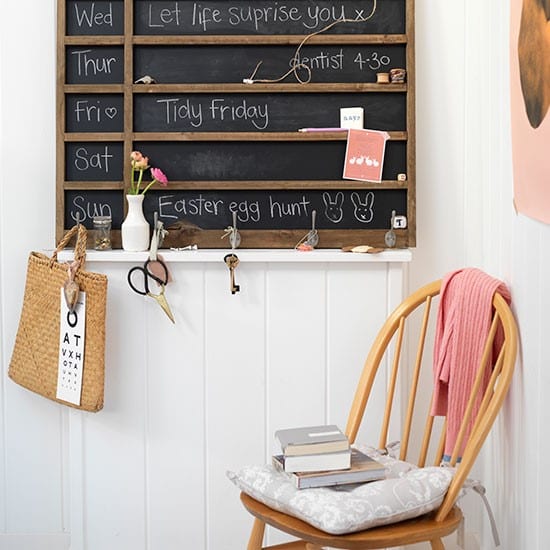 Wed Let life suprise you x
Thur dentist 4-30
Fri Tidy Friday
Sat
Sun Easter egg hunt
O
AT
VXH
HOTA